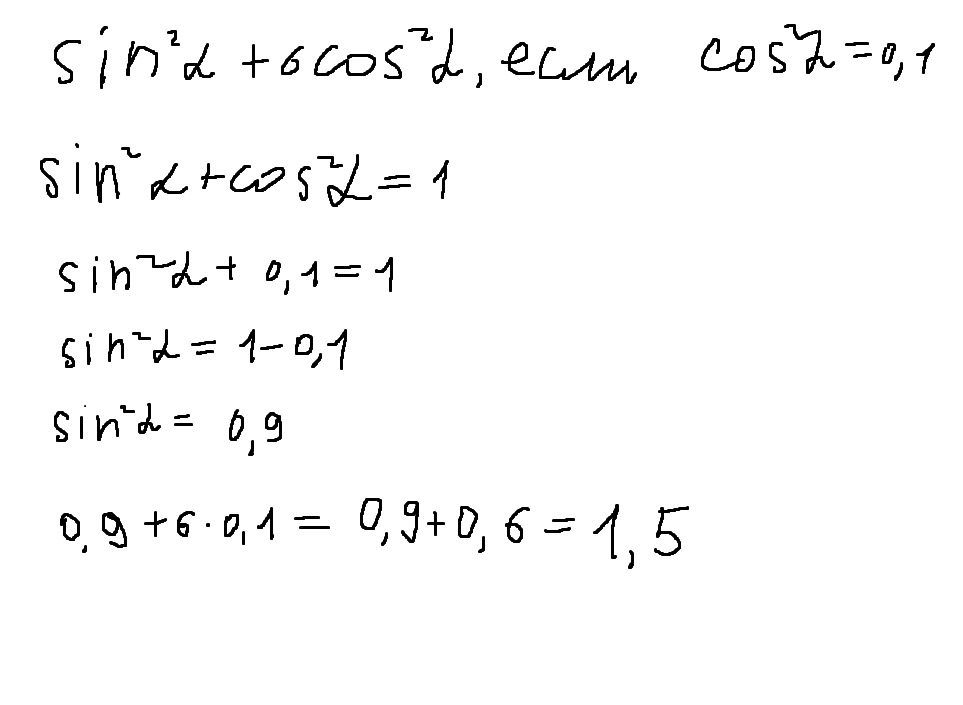 sin²α + 6cos²α, если cos²α = 0,1
sin²α + cos²α = 1
sin²α + 0,1 = 1
sin²α = 1 - 0,1
sin²α = 0,9
0,9 + 6 · 0,1 = 0,9 + 0,6 = 1,5